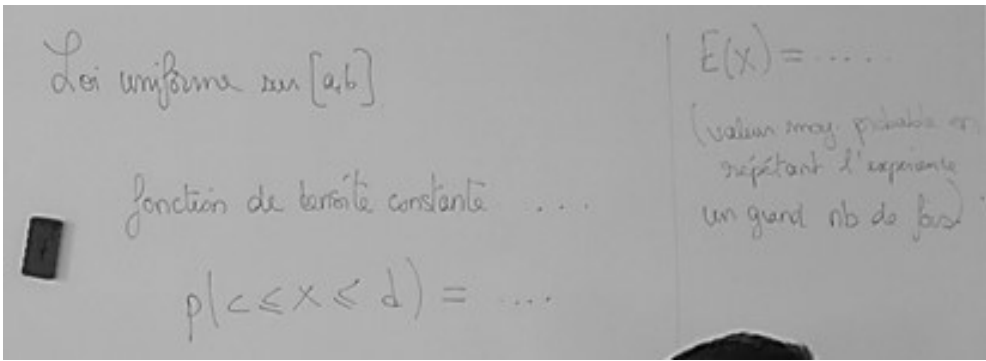 Loi uniforme sur [a,b]
fonction de densité constante ....
p(c ≤ X ≤ d) = ....
E(X) = .....
(valeur moy probable en
répétant l'expérience
un grand nb de fois)